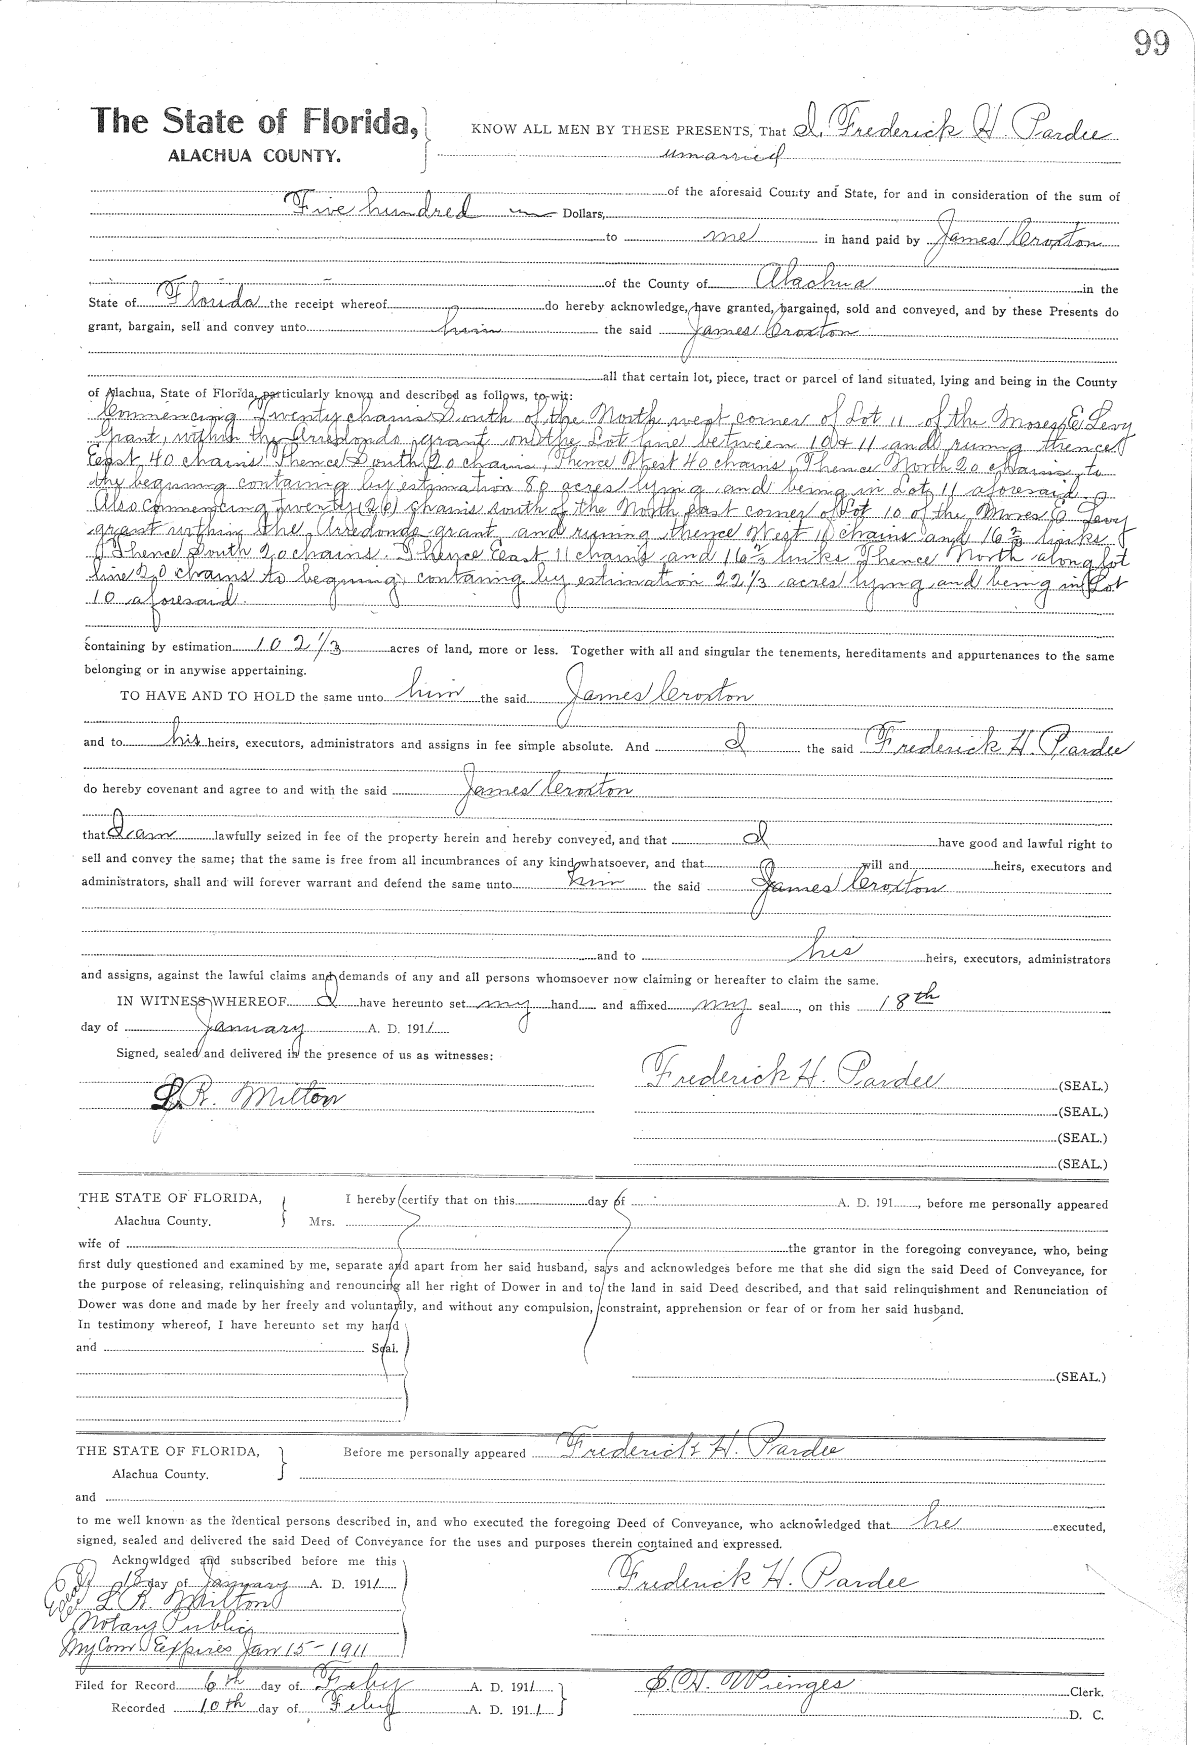 99
The State of Florida,
ALACHUA COUNTY.
KNOW ALL MEN BY THESE PRESENTS, That I, Frederick H. Pardee
umarried
of the aforesaid County and State, for and in consideration of the sum of
Five hundred Dollars,
to me in hand paid by James Croxton
of the County of Alachua in the
State of Florida the receipt whereof do hereby acknowledge, have granted, bargained, sold and conveyed, and by these Presents do
grant, bargain, sell and convey unto him the said James Croxton
all that certain lot, piece, tract or parcel of land situated, lying and being in the County
of Alachua, State of Florida, particularly known and described as follows, to-wit:
Commencing Twenty chains South of the North west corner of Lot 11 of the Moses E. Levy
Grant, within the Arredondo grant on the Lot line between 10 & 11 and runing thence
East 40 chains Thence South 20 chains, Thence West 40 chains, Thence North 20 chains to
the begining containing by estimation 80 acres lying and being in Lot 11 aforesaid.
Also Commencing Twenty (20) chains south of the North east corner of Lot 10 of the Moses E. Levy
grant within the Arredondo grant, and runing thence West 11 chains and 16 2/3 links
Thence South 20 chains. Thence East 11 chains and 16 2/3 links Thence North along lot
line 20 chains to begning, containg by estimation 22 1/3 acres lying and being in Lot
10 aforesaid.
containing by estimation 102 1/3 acres of land, more or less. Together with all and singular the tenements, hereditaments and appurtenances to the same
belonging or in anywise appertaining.
TO HAVE AND TO HOLD the same unto him the said James Croxton
and to his heirs, executors, administrators and assigns in fee simple absolute. And I the said Frederick H. Pardee
do hereby covenant and agree to and with the said James Croxton
that I am lawfully seized in fee of the property herein and hereby conveyed, and that I have good and lawful right to
sell and convey the same; that the same is free from all incumbrances of any kind whatsoever, and that will and heirs, executors and
administrators, shall and will forever warrant and defend the same unto him the said James Croxton
and to his heirs, executors, administrators
and assigns, against the lawful claims and demands of any and all persons whomsoever now claiming or hereafter to claim the same.
IN WITNESS WHEREOF I have hereunto set my hand and affixed my seal, on this 18th
day of January A. D. 1911
Signed, sealed and delivered in the presence of us as witnesses:
Frederick H. Pardee (SEAL.)
L. R. Milton (SEAL.)
(SEAL.)
(SEAL.)
THE STATE OF FLORIDA, I hereby certify that on this day of A. D. 191 , before me personally appeared
Alachua County. Mrs.
wife of the grantor in the foregoing conveyance, who, being
first duly questioned and examined by me, separate and apart from her said husband, says and acknowledges before me that she did sign the said Deed of Conveyance, for
the purpose of releasing, relinquishing and renouncing all her right of Dower in and to the land in said Deed described, and that said relinquishment and Renunciation of
Dower was done and made by her freely and voluntarily, and without any compulsion, constraint, apprehension or fear of or from her said husband.
In testimony whereof, I have hereunto set my hand
and Seal.
(SEAL.)
THE STATE OF FLORIDA, Before me personally appeared Frederick H. Pardee
Alachua County.
and
to me well known as the identical persons described in, and who executed the foregoing Deed of Conveyance, who acknowledged that he executed,
signed, sealed and delivered the said Deed of Conveyance for the uses and purposes therein contained and expressed.
Acknowldged and subscribed before me this
18 day of January A. D. 1911
Frederick H. Pardee
L R. Milton
Notary Public
My Com Expires Jan 15 - 1911
Filed for Record 6th day of Feby A. D. 1911
S. H. Wienges Clerk.
Recorded 10th day of Feby A. D. 1911
D. C.